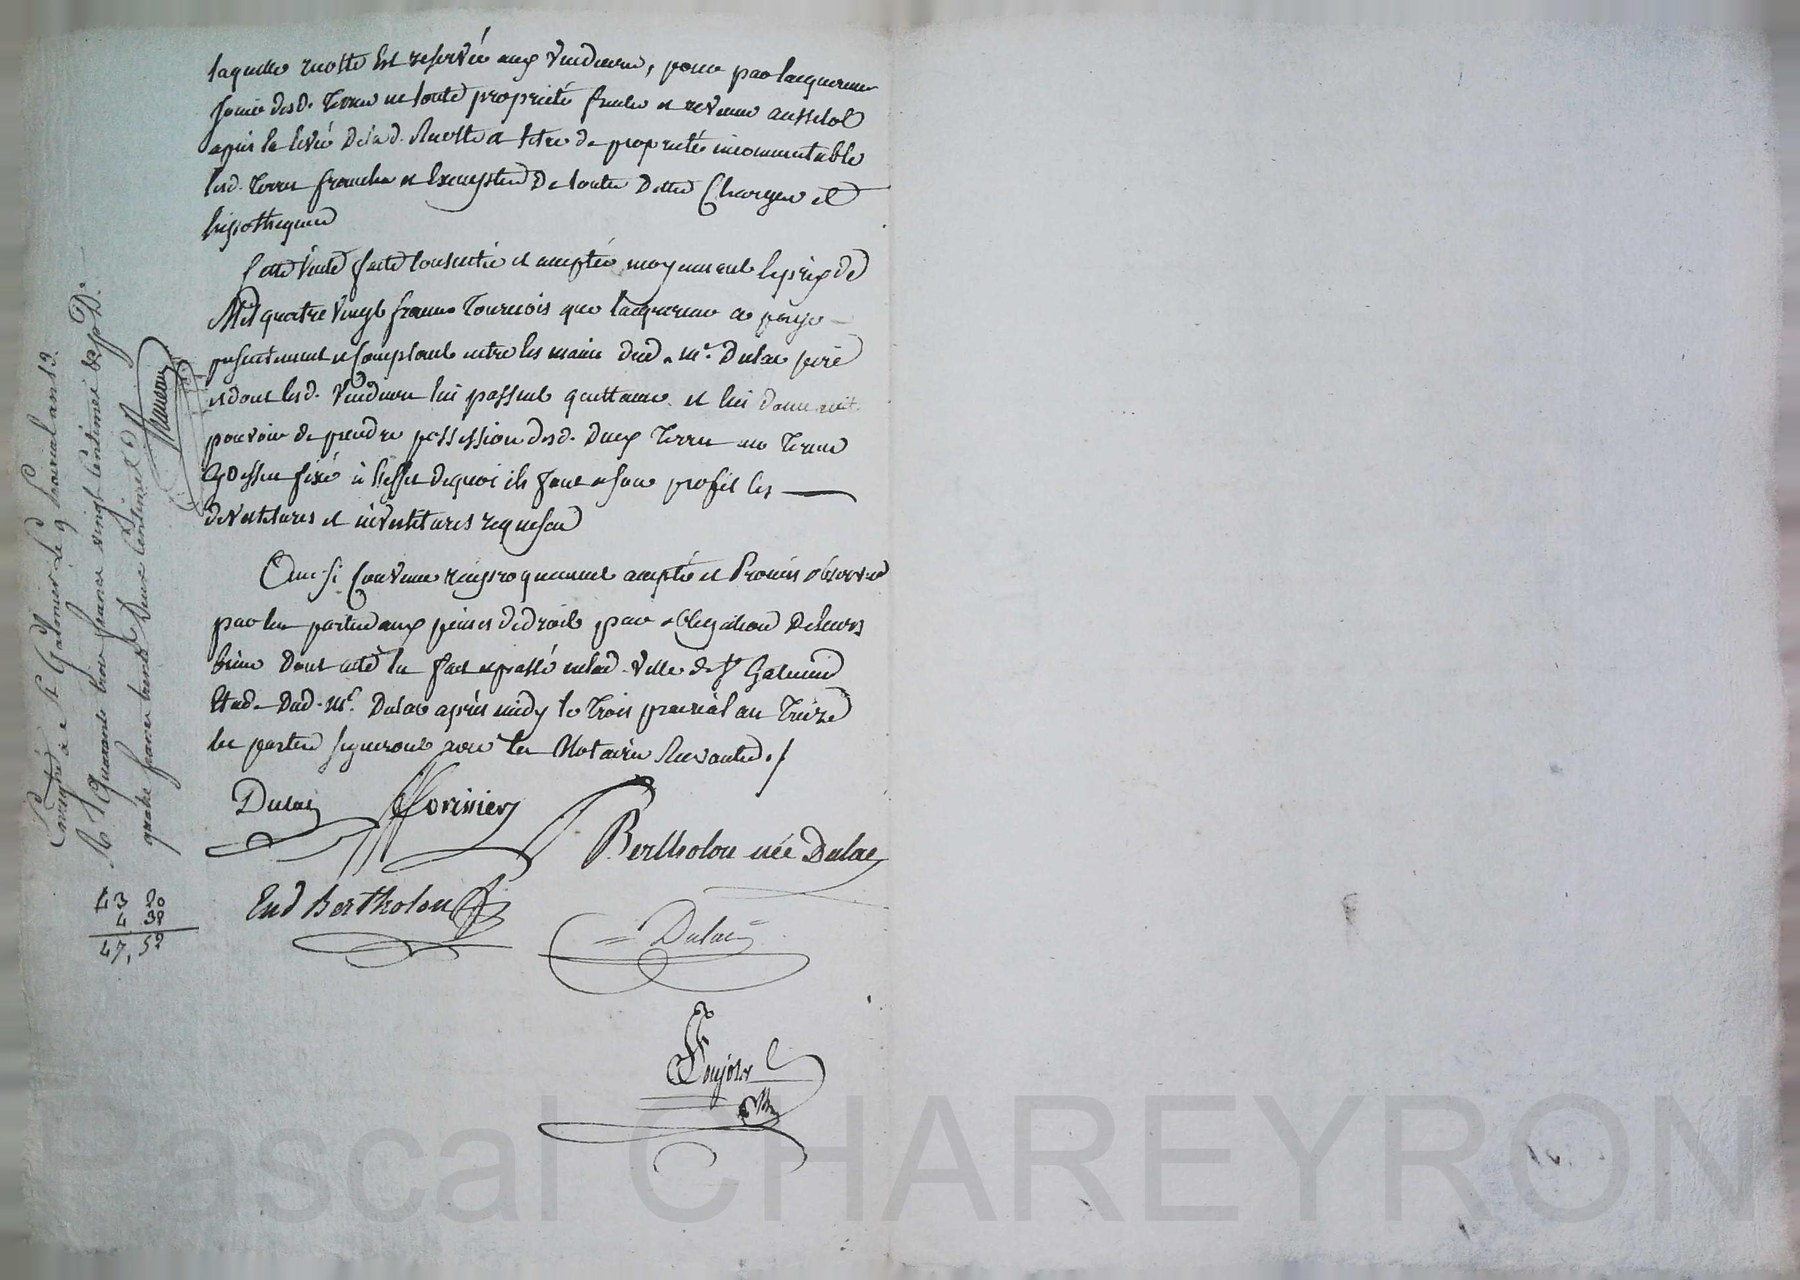 laquelle recolte est reservée aux vendeurs, pour par lacquereur
jouir desd. terres en toute proprieté fruits et revenus aussitot
apres la levée de lad. Recolte a titre de proprieté incommutable
lesd. terres franches et exemptes de toutes dettes Charges et
hipotheques
Cette vente faite consentie et acceptée moyennant le prix de
Mil quatre vingt francs tournois que lacquereur a payé
presentement et comptant entre les mains dud. Mr. Dulac pere
et dont lesd. vendeurs lui passent quittance et lui donnent
pouvoir de prendre possession desd. deux terres au terme
cy dessus fixé à l'effet de quoi ils font a son profit les
devestitures et investitures requises
Ainsi convenu reciproquement accepté et Promis observer
par les parties aux peines de droit par obligation de leurs
biens dont acte lu fait et passé en lad. ville de St Galmier
Etude dud. Mr. Dulac après midy le trois prairial an treize
les parties signeront avec les Notaires Recevants ./.
Dulac
Bertholon née Dulac
End Bertholon
= Dulac =
Enregistré a St Galmier le 9 prairial an 13.
R. Quarante trois francs vingt centimes &
quatre francs trente deux centimes
43 20
4 32
47, 52
Pascal CHAREYRON